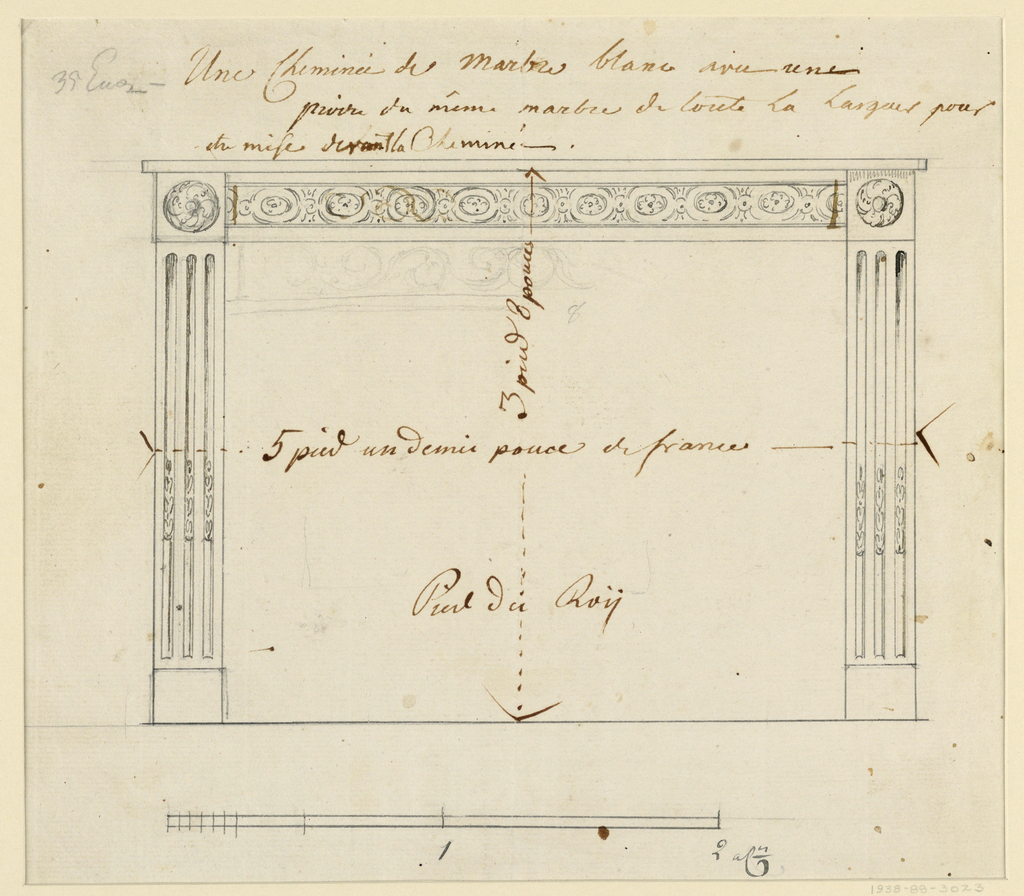 Une Cheminée de Marbre blanc avec une
pierre du même marbre de toute La Largeur pour
etre mise devant la Cheminé .
3 pied 8 pouces
8
5 pied un demie pouce de france
Pied du Roÿ
1
2
1938-88-3023